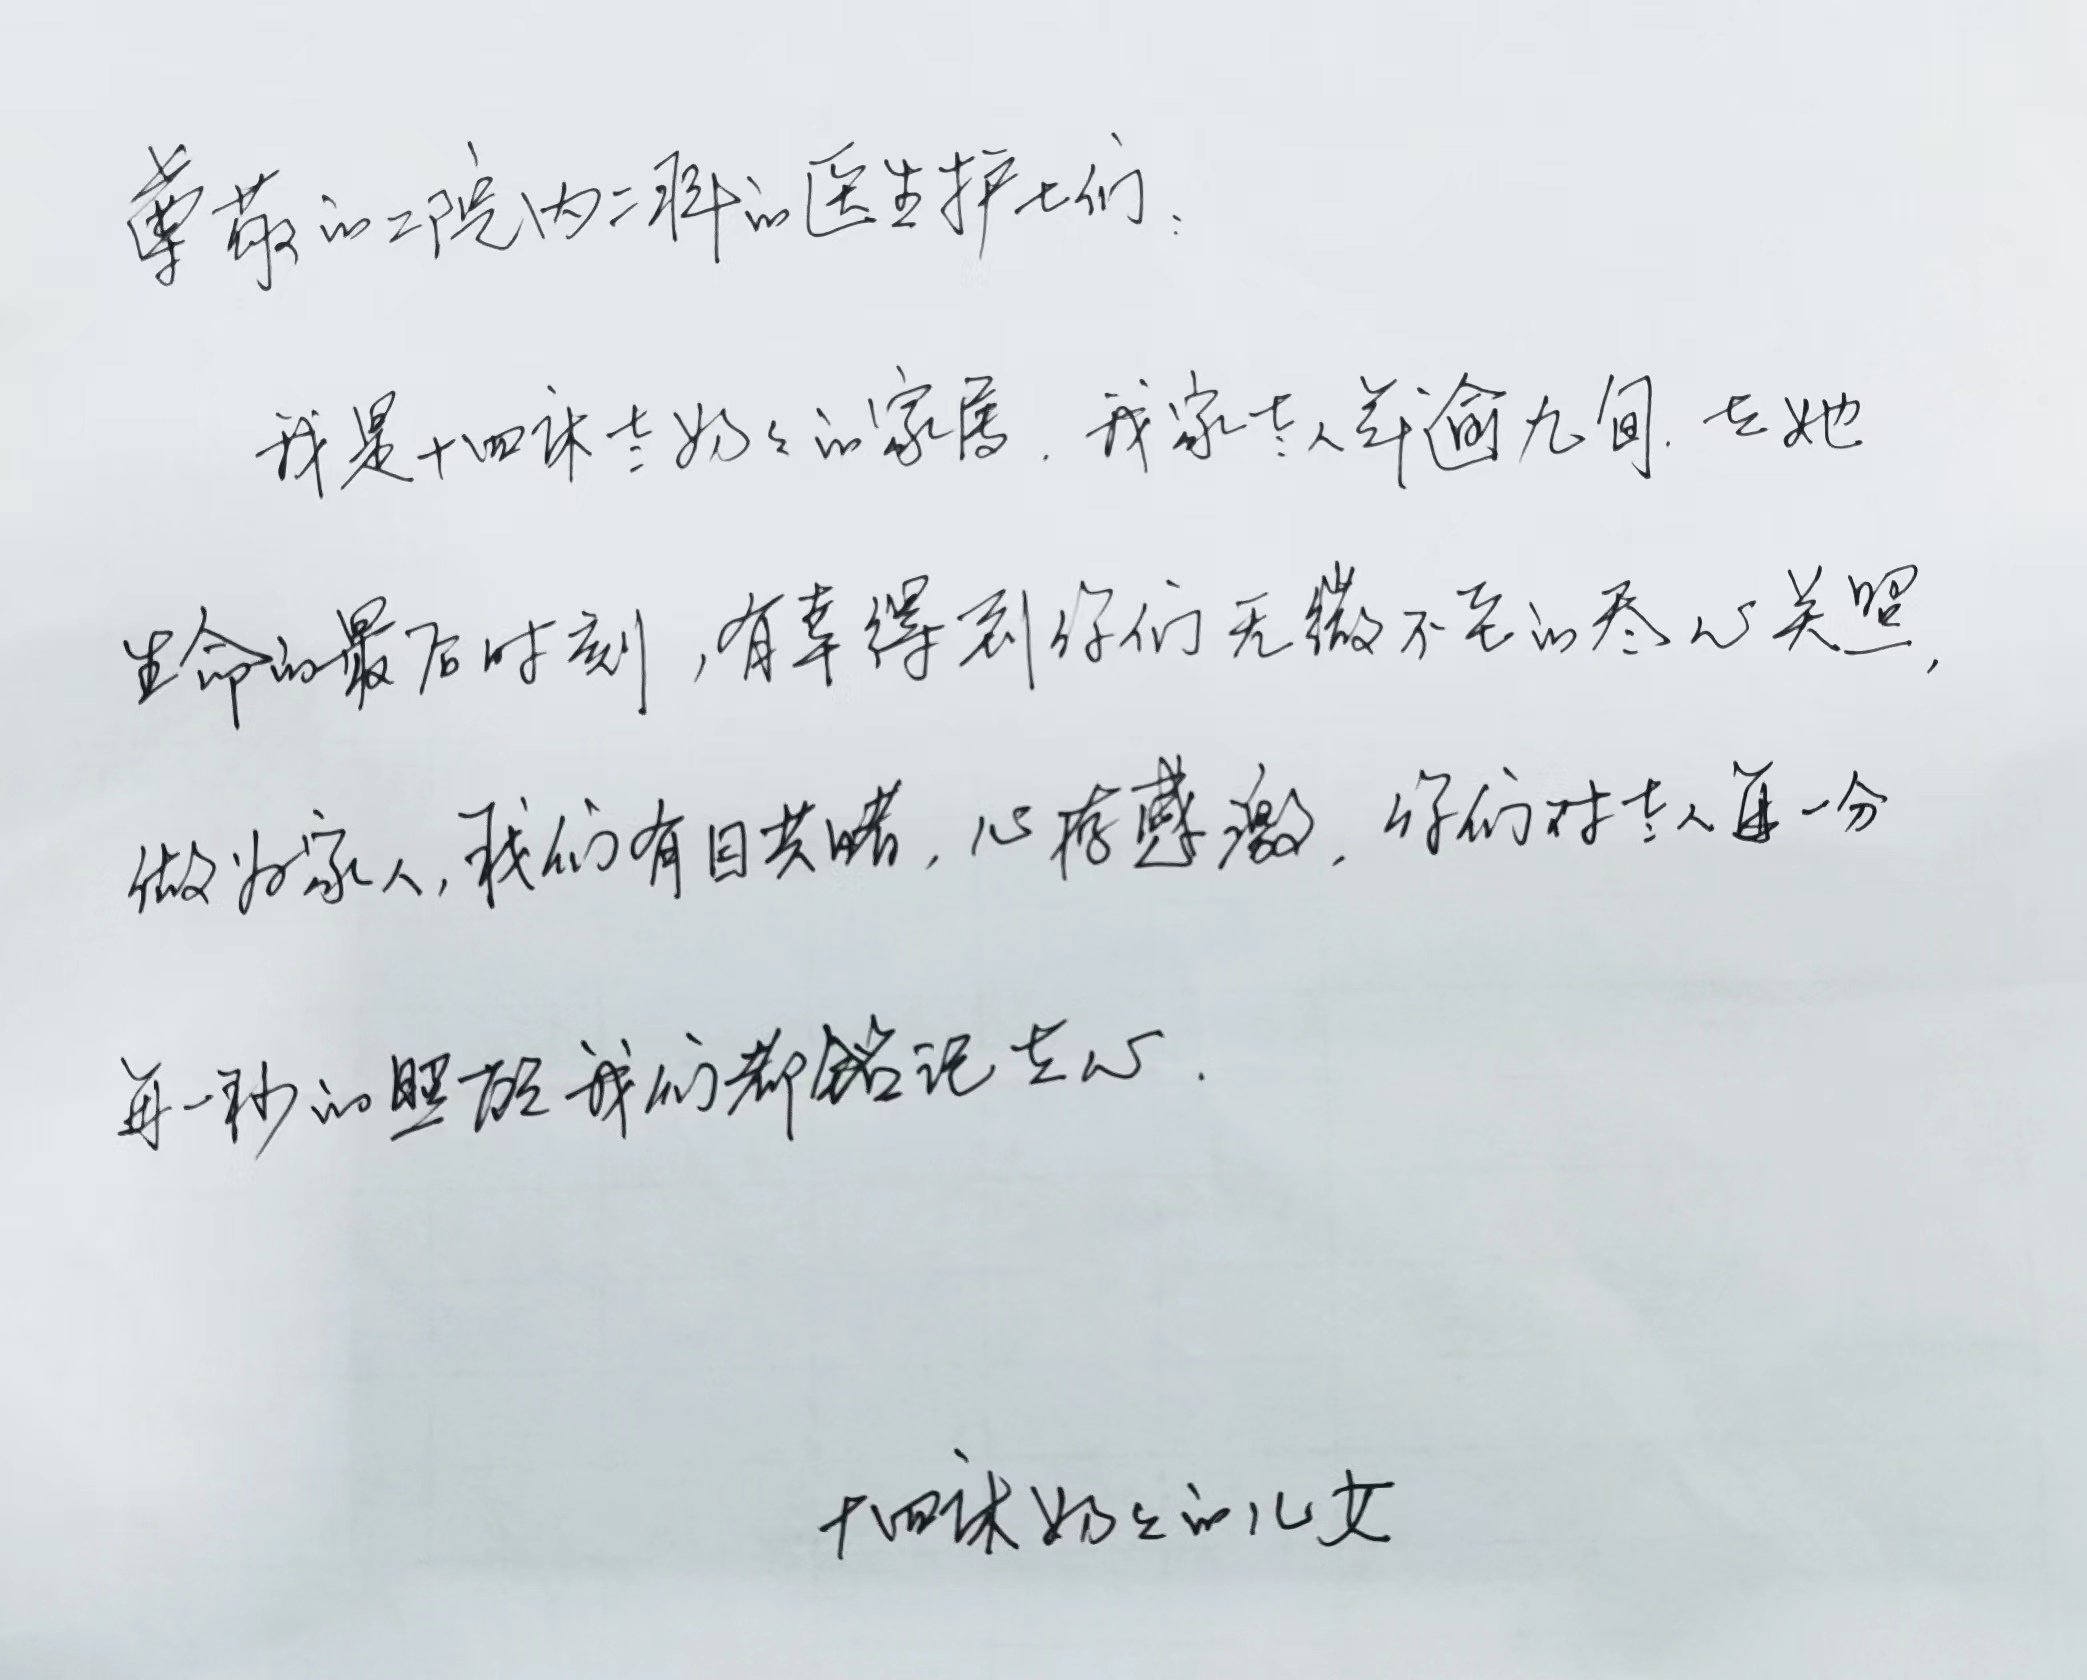 尊敬的二院内二科的医生护士们：
我是十四床老奶奶的家属．我家老人年逾九旬．在她
生命的最后时刻，有幸得到你们无微不至的尽心关照，
做为家人，我们有目共睹，心存感激．你们对老人每一分
每一秒的照顾我们都铭记在心．
十四床奶奶的儿女